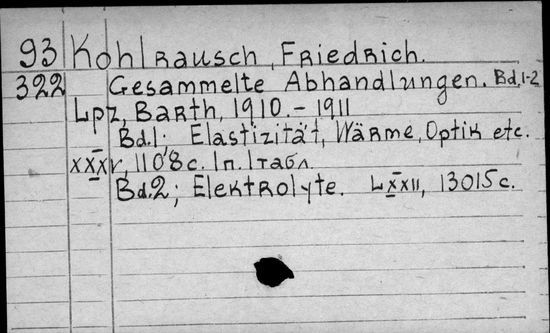 93 Kohlrausch, Friedrich.
322 Gesammelte Abhandlungen. Bd.1-2
Lpz, Barth, 1910.-1911
Bd.1; Elastizität, Wärme, Optik etc.
XXXV, 1108 с. 1п. 1табл.
Bd.2; Elektrolyte. LXXII, 13015 с.